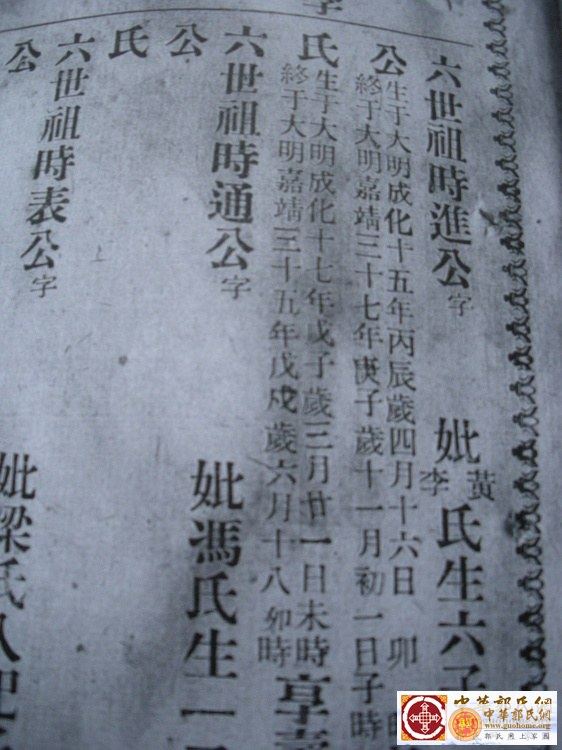 六世祖時進公字 妣黃李氏生六子
公生于大明成化十五年丙辰歲四月十六日 卯時
終于大明嘉靖三十七年庚子歲十一月初一日子時
氏生于大明成化十七年戊子歲三月廿一日未時 享壽
終于大明嘉靖三十五年戊戍歲六月十八卯時
六世祖時通公字 妣馮氏生
公
氏
六世祖時表公字 妣梁氏
公
中華郭氏網
中華郭氏網
www.guohome.org
郭氏網上家園